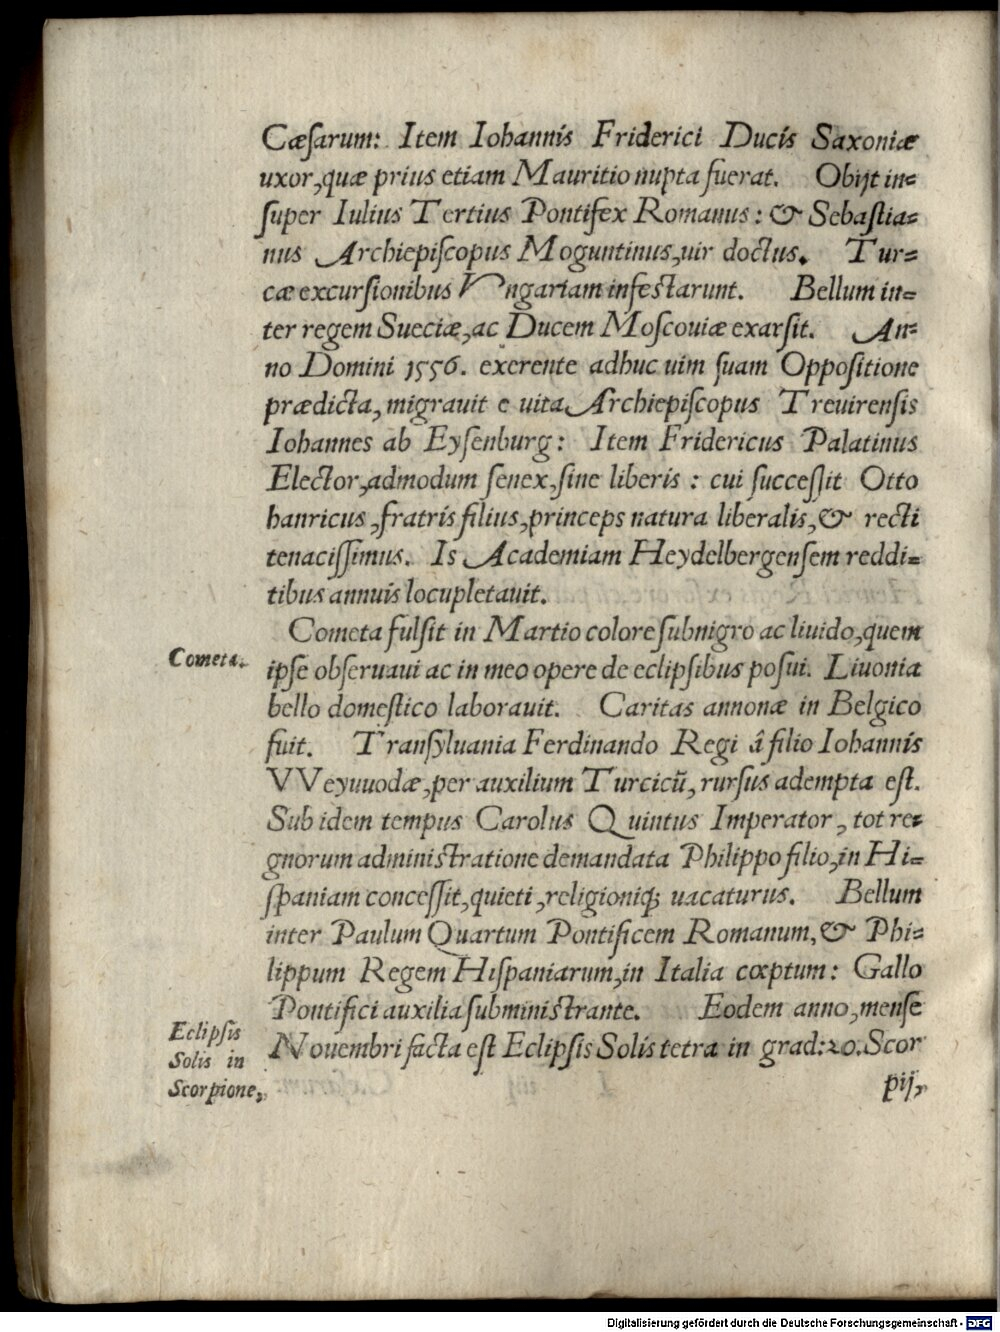 Cæſarum: Item Iohannis Friderici Ducis Saxoniæ
uxor, quæ prius etiam Mauritio nupta fuerat. Obijt in⸗
ſuper Iulius Tertius Pontifex Romanus: & Sebaſtia⸗
nus Archiepiſcopus Moguntinus, uir doctus. Tur⸗
cæ excurſionibus Vngariam infeſtarunt. Bellum in⸗
ter regem Sueciæ, ac Ducem Moſcouiæ exarſit. An⸗
no Domini 1556. exerente adhuc uim ſuam Oppoſitione
prædicta, migrauit e uita Archiepiſcopus Treuirenſis
Iohannes ab Eyſenburg: Item Fridericus Palatinus
Elector, admodum ſenex, ſine liberis: cui ſucceſſit Otto
hanricus, fratris filius, princeps natura liberalis, & recti
tenaciſſimus. Is Academiam Heydelbergenſem reddi⸗
tibus annuis locupletauit.
Cometa fulſit in Martio colore ſubnigro ac liuido, quem
Cometa.
ipſe obſeruaui ac in meo opere de eclipſibus poſui. Liuonia
bello domeſtico laborauit. Caritas annonæ in Belgico
fuit. Tranſyluania Ferdinando Regi â filio Iohannis
VVeyuuodæ, per auxilium Turcicũ, rurſus adempta eſt.
Sub idem tempus Carolus Quintus Imperator, tot re⸗
gnorum adminiſtratione demandata Philippo filio, in Hi⸗
ſpaniam conceſſit, quieti, religioniq́; uacaturus. Bellum
inter Paulum Quartum Pontificem Romanum, & Phi⸗
lippum Regem Hiſpaniarum, in Italia cœptum: Gallo
Pontifici auxilia ſubminiſtrante. Eodem anno, menſe
Nouembri facta eſt Eclipſis Solis tetra in grad: 20. Scor
Eclipſis
Solis in
Scorpione,
pij,
Digitalisierung gefördert durch die Deutsche Forschungsgemeinschaft - DFG